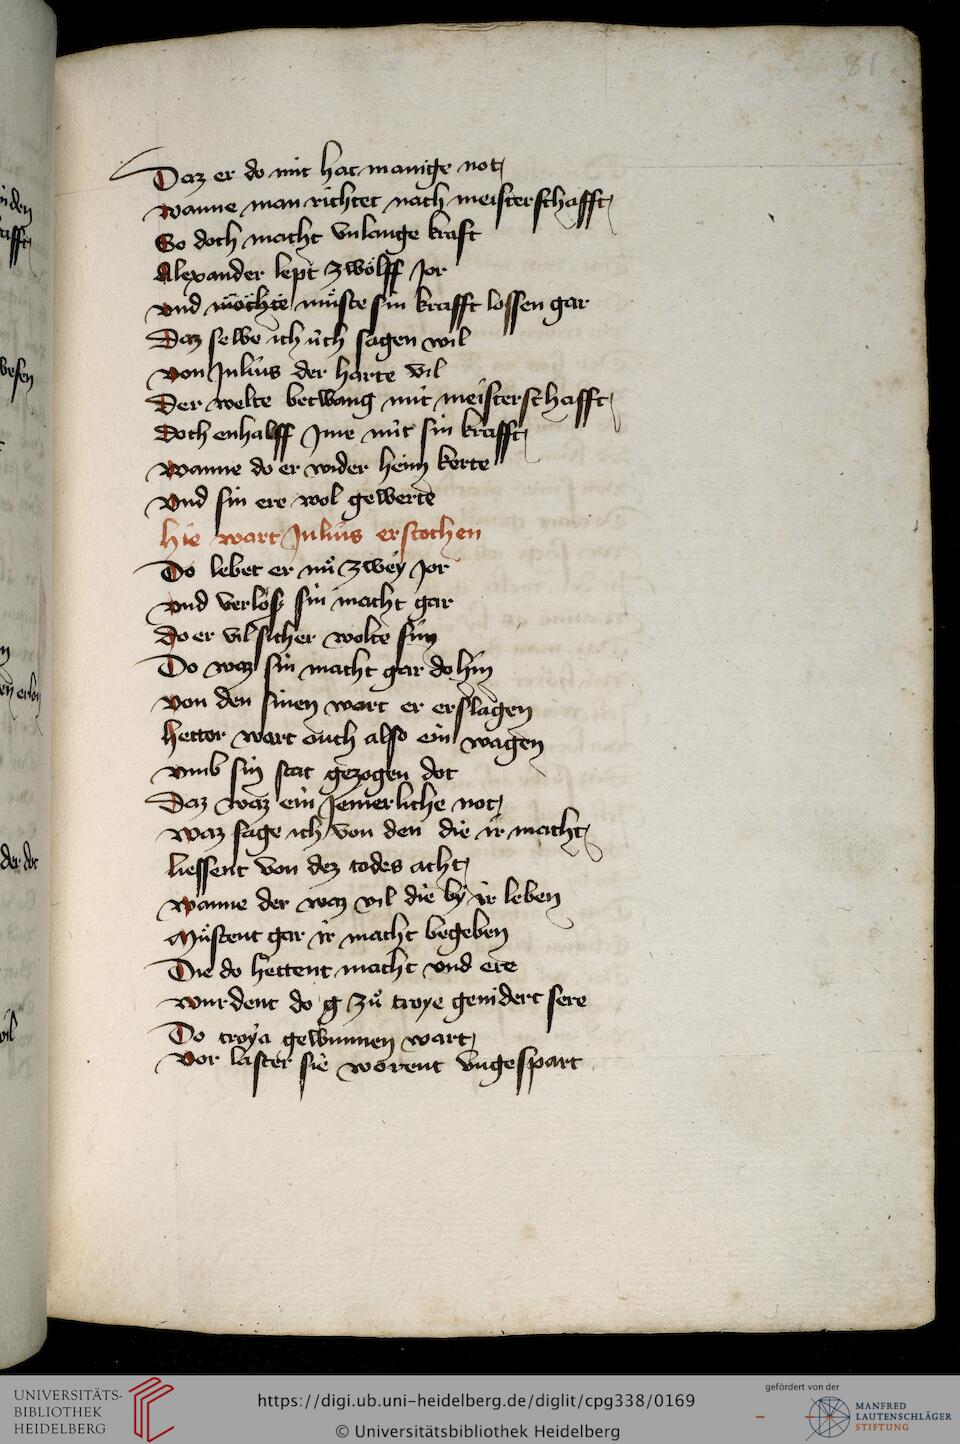 81
Daz er do mit hat manige not
wanne man richtet nach meisterschafft
So doch macht vnlange kraft
Alexander lept zwölff Jor
vnd möchte müste sin krafft lossen gar
Daz selbe ich üch sagen wil
von Julius der harte vil
Der welte betwang mit meisterschafft
Doch enhalff Jme nüt sin krafft
Wanne do er wider heim kerte
Vnd sin ere wol gewerte
hie wart Julius erstochen
Do lebet er nů zwey Jor
vnd verlösz sin macht gar
do er vil sicher wolte sin
Do waz sin macht gar do hin
von den sinen wart er erslagen
hettor wart ouch also ein wagen
vmb sin stat gezogen dot
Daz waz ein Jemerliche not
waz sage ich von den die ir macht
liessent von dez todes acht
wanne der waz vil die by ir leben
Müstent gar ir macht begeben
Die do hettent macht vnd ere
wurdent do g zů troye genidert sere
Do troya gewunnen wart
Vor laster sie worent vngespart
UNIVERSITÄTS-
BIBLIOTHEK
HEIDELBERG
https://digi.ub.uni-heidelberg.de/diglit/cpg338/0169
© Universitätsbibliothek Heidelberg
gefördert von der
MANFRED
LAUTENSCHLÄGER
STIFTUNG